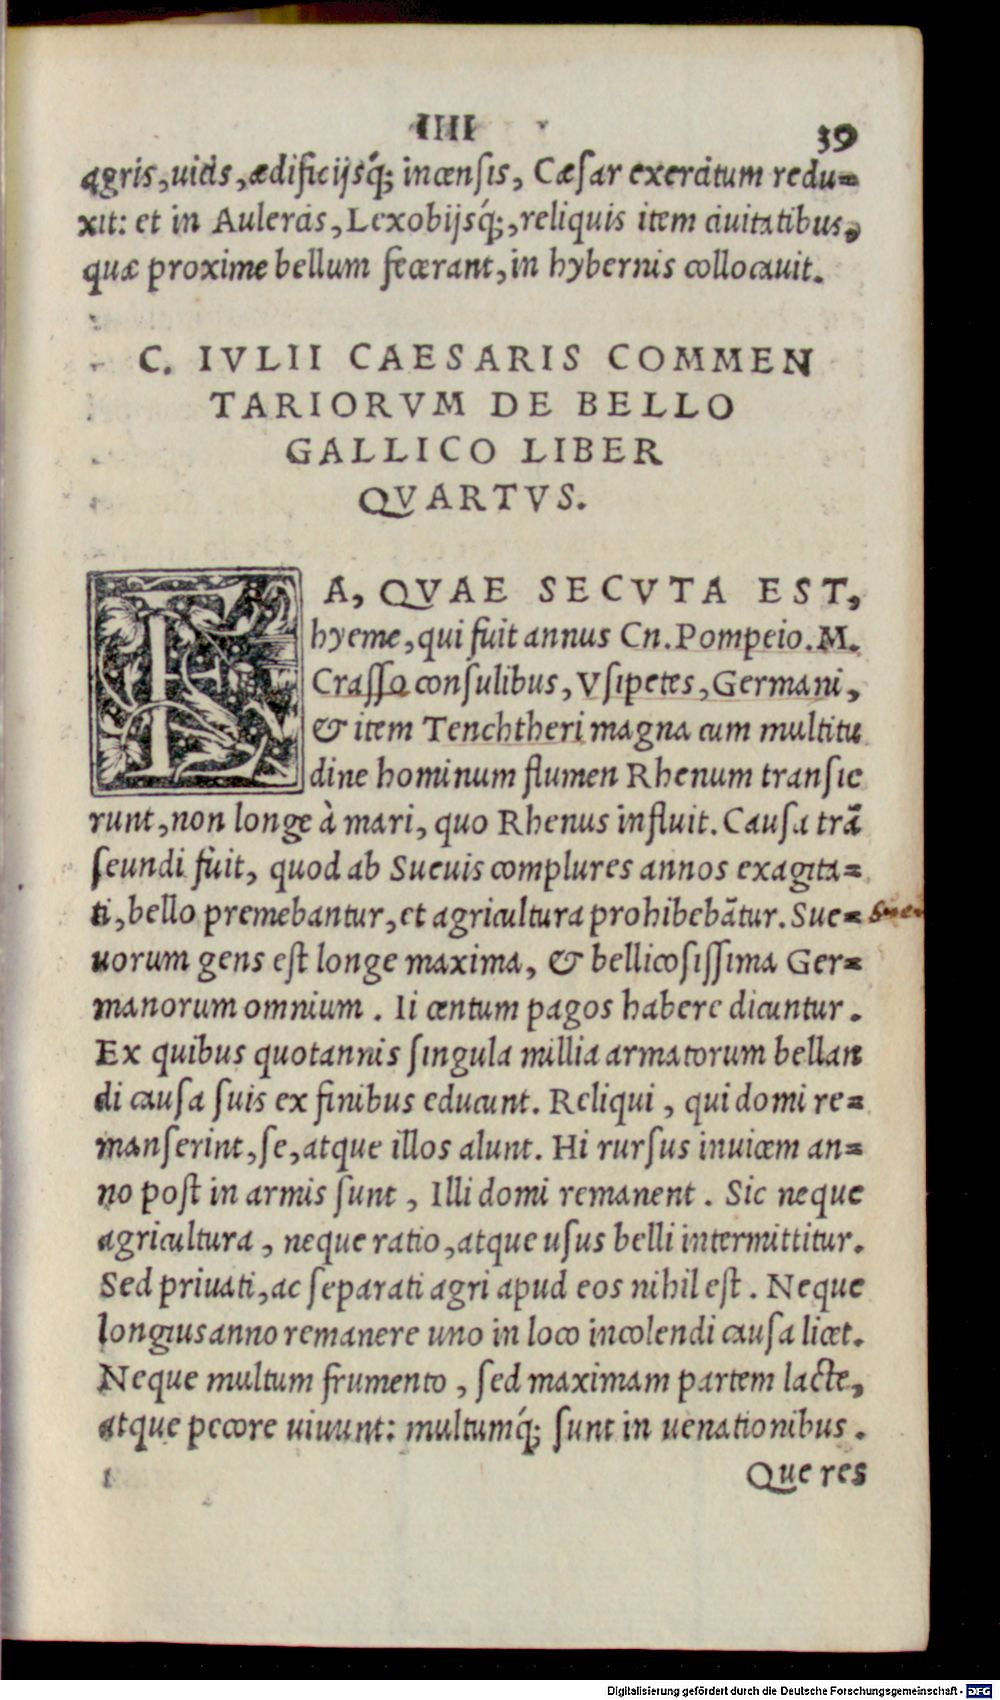 IIII 39
agris, uicis, ædificijsq́; incensis, Cæsar exercitum redu-
xit: et in Aulercis, Lexobijsq́;, reliquis item ciuitatibus,
quæ proxime bellum fecerant, in hybernis collocauit.
C. IVLII CAESARIS COMMEN
TARIORVM DE BELLO
GALLICO LIBER
QVARTVS.
EA, QVAE SECVTA EST,
hyeme, qui fuit annus Cn. Pompeio. M.
Crasso consulibus, Vsipetes, Germani,
& item Tenchtheri magna cum multitu
dine hominum flumen Rhenum transie
runt, non longe à mari, quo Rhenus influit. Causa trā
seundi fuit, quod ab Sueuis complures annos exagita-
ti, bello premebantur, et agricultura prohibebātur. Sue-
uorum gens est longe maxima, & bellicosissima Ger-
manorum omnium. Ii centum pagos habere dicuntur.
Ex quibus quotannis singula millia armatorum bellan
di causa suis ex finibus educunt. Reliqui, qui domi re-
manserint, se, atque illos alunt. Hi rursus inuicem an-
no post in armis sunt, Illi domi remanent. Sic neque
agricultura, neque ratio, atque usus belli intermittitur.
Sed priuati, ac separati agri apud eos nihil est. Neque
longius anno remanere uno in loco incolendi causa licet.
Neque multum frumento, sed maximam partem lacte,
atque pecore uiuunt: multumq́; sunt in uenationibus.
Que res
Digitalisierung gefördert durch die Deutsche Forschungsgemeinschaft - DFG